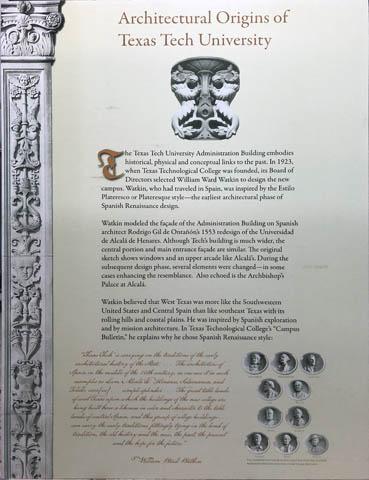 Architectural Origins of
Texas Tech University
The Texas Tech University Administration Building embodies
historical, physical and conceptual links to the past. In 1923,
when Texas Technological College was founded, its Board of
Directors selected William Ward Watkin to design the new
campus. Watkin, who had traveled in Spain, was inspired by the Estilo
Plateresco or Plateresque style—the earliest architectural phase of
Spanish Renaissance design.
Watkin modeled the façade of the Administration Building on Spanish
architect Rodrigo Gil de Ontañón's 1553 redesign of the Universidad
de Alcalá de Henares. Although Tech's building is much wider, the
central portion and main entrance façade are similar. The original
sketch shows windows and an upper arcade like Alcalá's. During the
subsequent design phase, several elements were changed—in some
cases enhancing the resemblance. Also echoed is the Archbishop's
Palace at Alcalá.
Watkin believed that West Texas was more like the Southwestern
United States and Central Spain than like southeast Texas with its
rolling hills and coastal plains. He was inspired by Spanish exploration
and by mission architecture. In Texas Technological College's "Campus
Bulletin," he explains why he chose Spanish Renaissance style:
"Texas Tech is carrying on the traditions of the early
architectural history of the State. The architecture of
Spain in the middle of the 16th century, as one sees it in such
examples as
Toledo
of West Texas upon which the buildings of the new college are
being built have a likeness in color and character to the table
lands of central Spain, and this group of college buildings
can carry the early traditions fittingly
tradition, the old history and the new, the past, the present
and the hope for the future."
William Ward Watkin